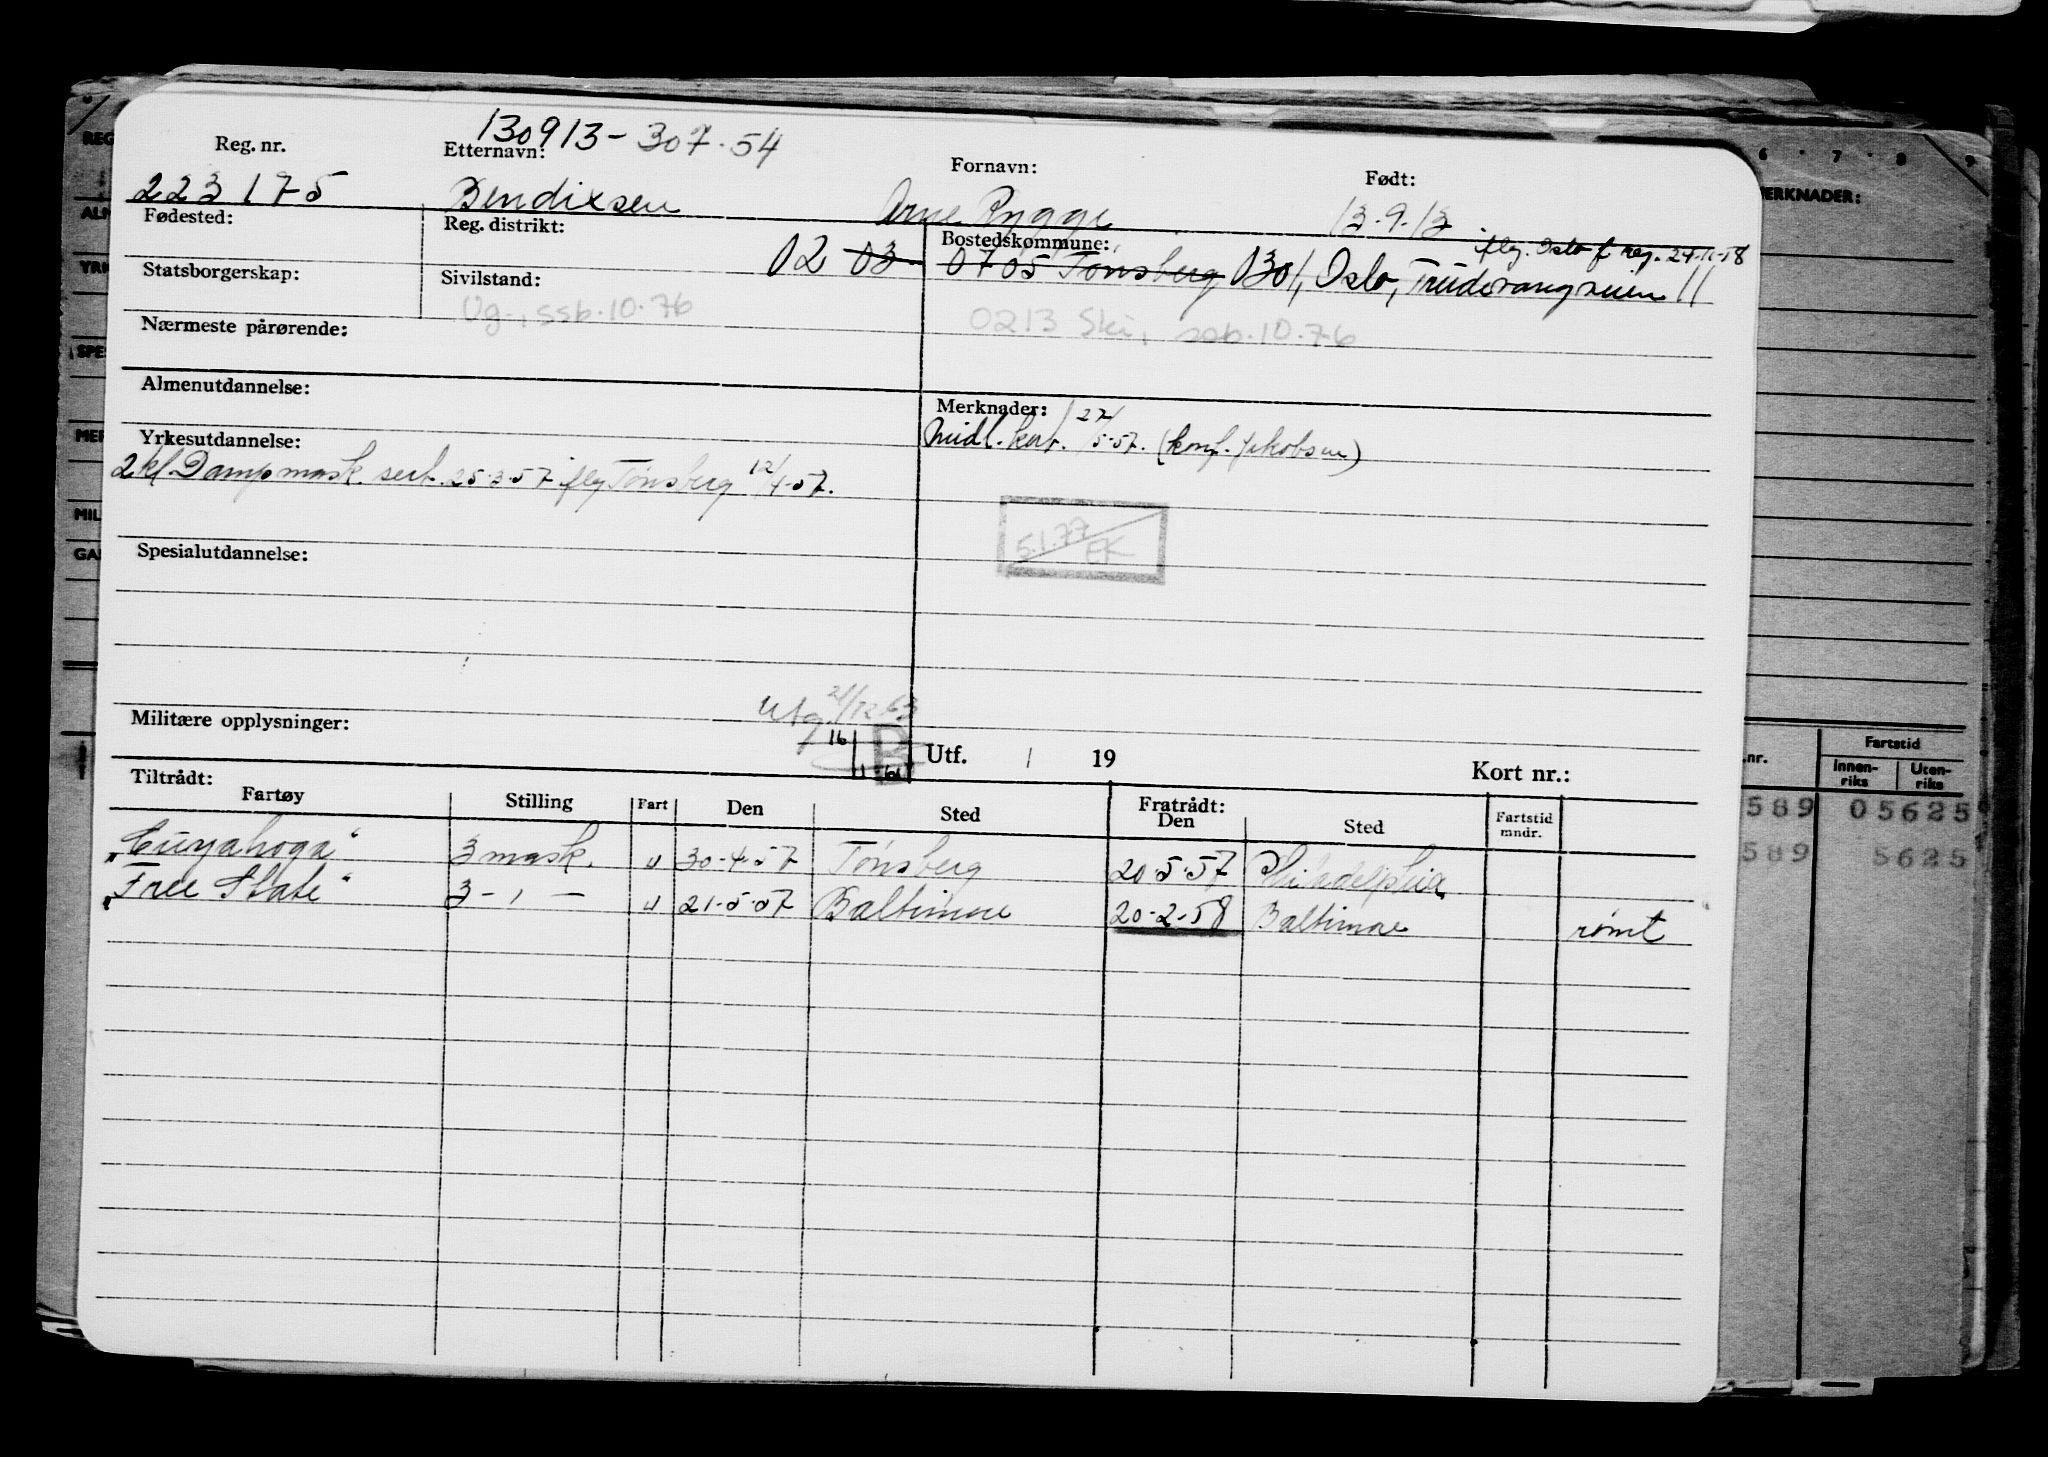 130913-307.54
Reg. nr. Etternavn: Fornavn: Født:
223175 Bendixsen Arne Rygge 13.9.13
Fødested: Reg. distrikt: Bostedskommune: flg. Oslo f reg. 24-11-58
02 03 0705 Tønsberg 0301, Oslo, Trudvangveien 11
Statsborgerskap: Sivilstand:
Ug., ssb.10.76 0213 Ski, ssb.10.76
Nærmeste pårørende:
Almenutdannelse: Merknader:
Midl. kar. 27/5-57. (konf. Jakobsen)
Yrkesutdannelse:
2 kl. Dampmask. sert. 25-3-57 flg Tønsberg 12/4-57.
5.1.77 EK
Spesialutdannelse:
Utg. 21/12-63
Militære opplysninger: 16 B Utf. / 19
1 61
Kort nr.:
Tiltrådt: Fratrådt:
Fartøy Stilling Fart Den Sted Den Sted Fartstid mndr.
"Cuyahoga" 3 mask. u 30-4-57 Tønsberg 20-5-57 Philadelphia
"Free State" 3 - " - u 21-5-57 Baltimore 20-2-58 Baltimore rømt
REG
YRK
SPES
MIL
6 7 8 9
MERKNADER:
.nr. Fartstid
Innen-riks Uten-riks
589 05625
589 5625